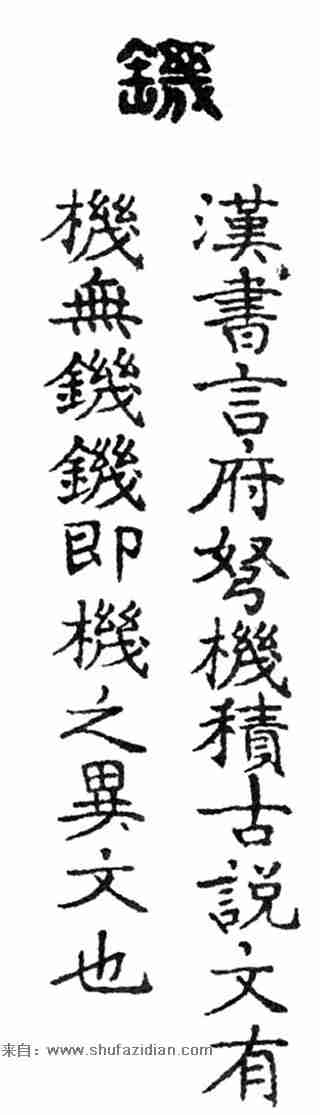 鐖
漢書言府弩機積古說文有
機無鐖鐖即機之異文也
来自：www.shufazidian.com